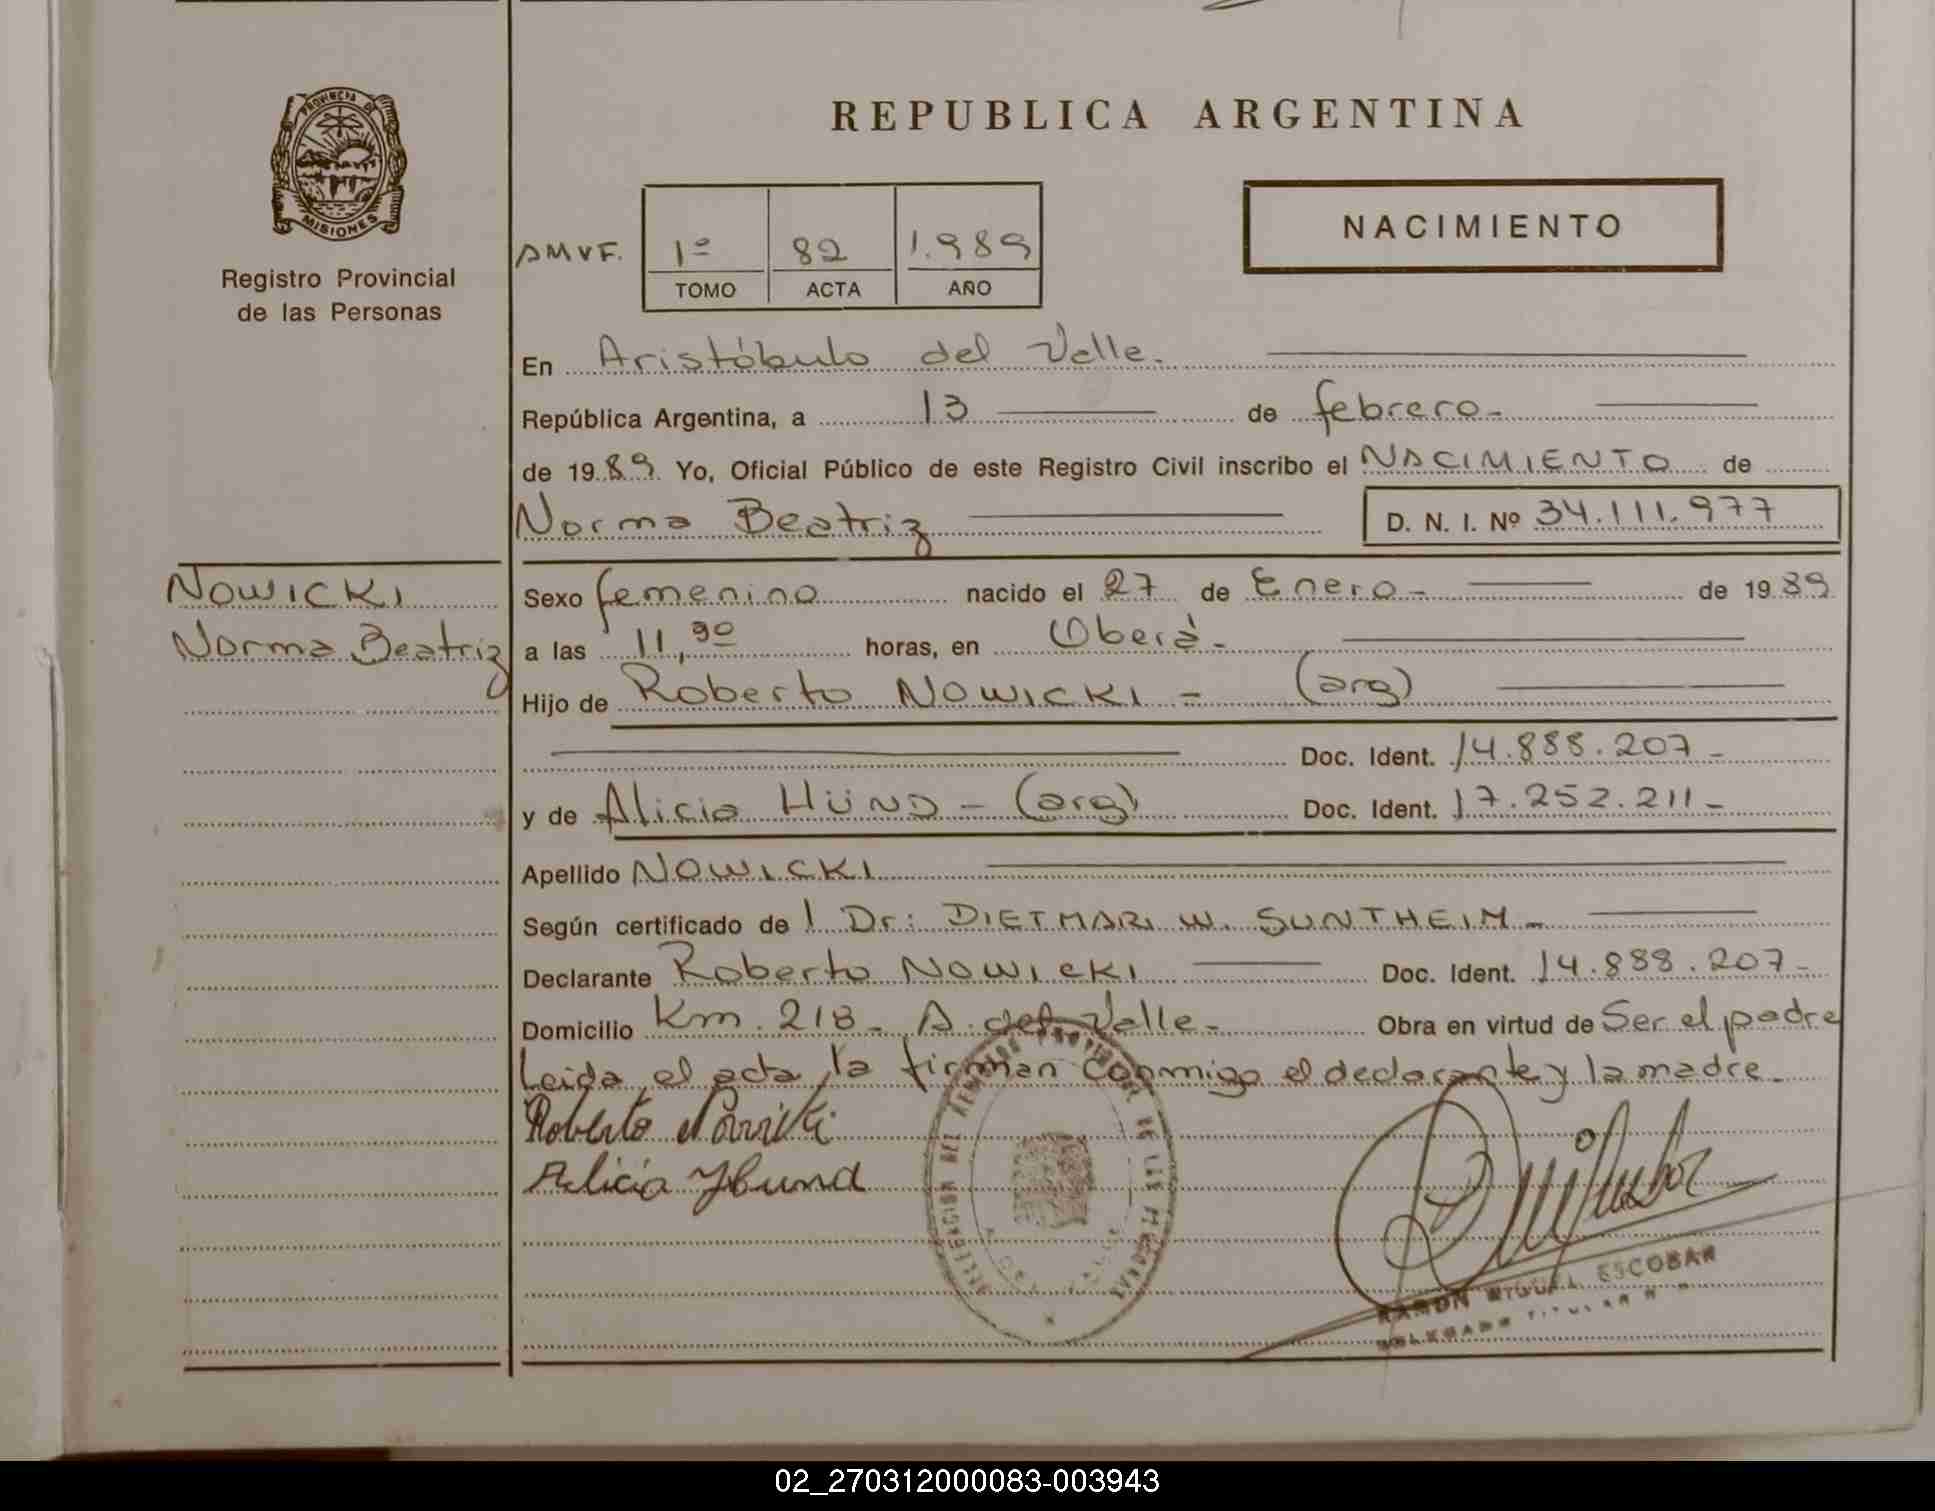 PROVINCIA DE
MISIONES
Registro Provincial
de las Personas
REPUBLICA ARGENTINA
NACIMIENTO
AMVF. 1º 82 1.989
TOMO ACTA AÑO
En Aristóbulo del Valle.
República Argentina, a 13 de febrero-
de 1989 Yo, Oficial Público de este Registro Civil inscribo el NACIMIENTO de
Norma Beatriz D. N. I. Nº 34.111.977
NOWICKI
Norma Beatriz
Sexo femenino nacido el 27 de Enero- de 1989
a las 11,30 horas, en Oberá-
Hijo de Roberto NOWICKI = (arg)
Doc. Ident. 14.888.207-
y de Alicia HÜND - (arg) Doc. Ident. 17.252.211-
Apellido NOWICKI
Según certificado de l Dr: DIETMAR W. SUNTHEIM-
Declarante Roberto NOWICKI Doc. Ident. 14.888.207-
Domicilio Km. 218- A. del Valle- Obra en virtud de Ser el padre
Leida el acta la firman conmigo el declarante y la madre-
Roberto Nowicki
Alicia Hund
DELEGACION DEL REGISTRO PROVINCIAL DE LAS PERSONAS
RAMON MIGUEL ESCOBAR
DELEGADO TITULAR
02_270312000083-003943